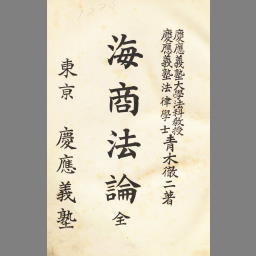 慶應義塾大學法科教授
慶應義塾法律學士
青木徹二著
海商法論 全
東京 慶應義塾